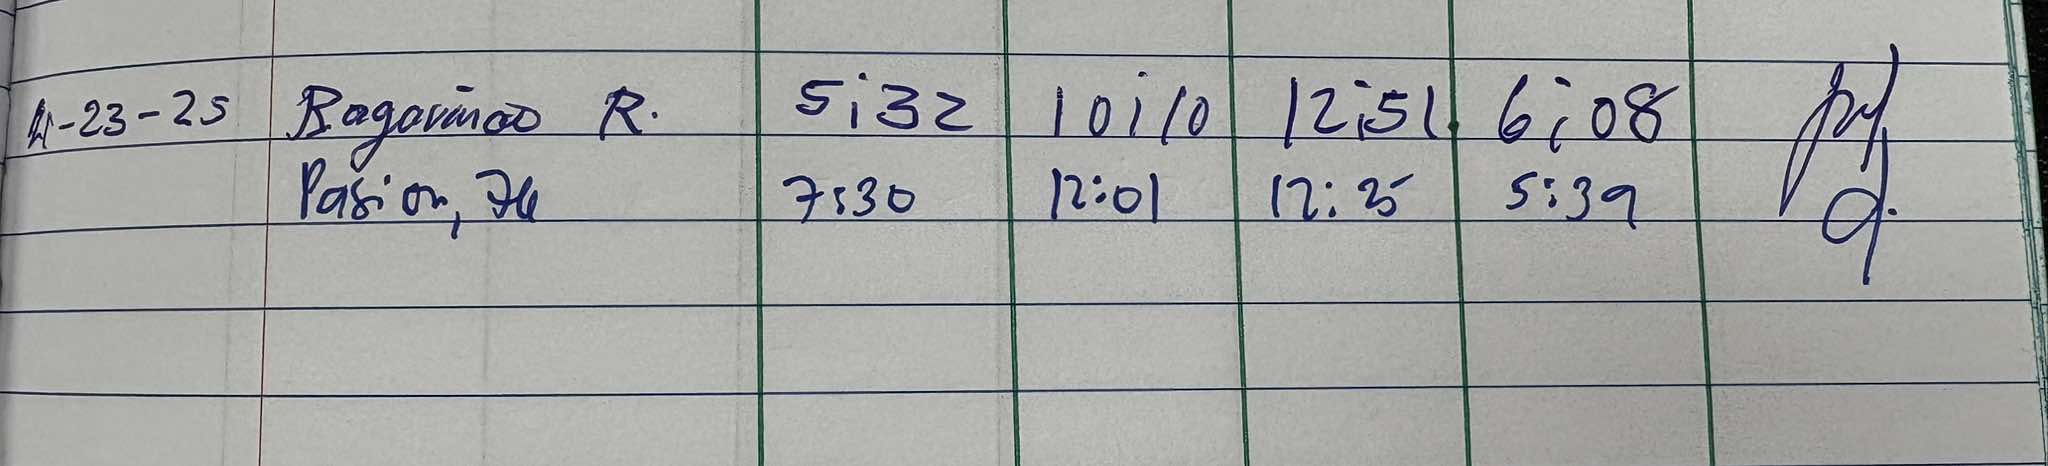 4-23-25 Bagarinao R. 5:32 10:10 12:51 6:08
Pasion, 7:30 12:01 12:35 5:39